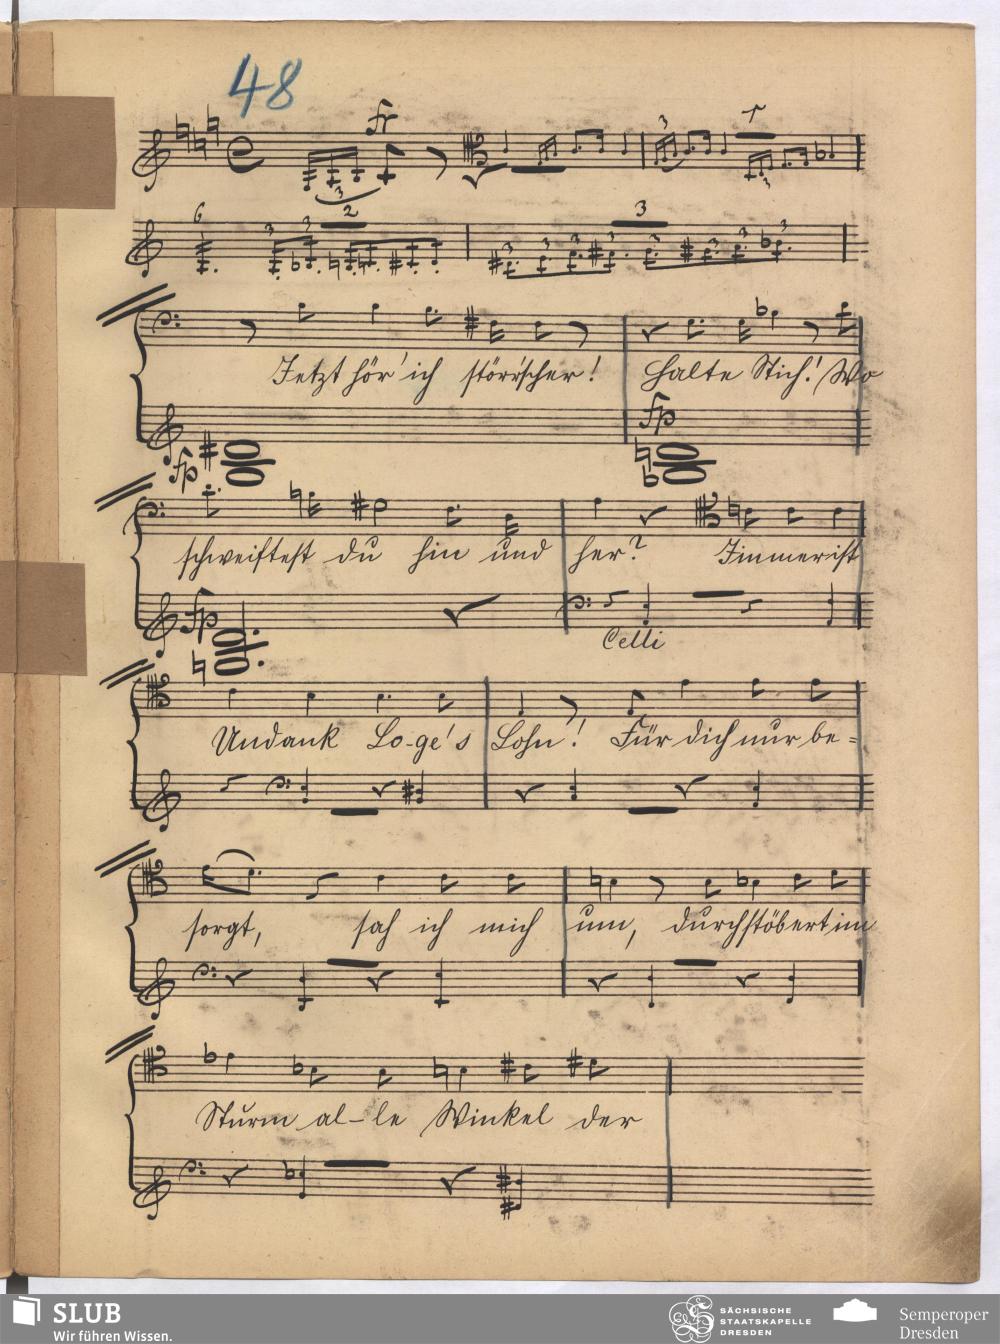 48
fr
3
3
1
3
6
3
3
2
3
3
3
3
3
3
3
3
3
Jetzt hör' ich störr'scher! Halte Stich! Wo
fp
fp
schweiftest du hin und her? Immer ist
fp
Celli
Undank Lo-ge's Lohn! Für dich nur be=
sorgt, sah ich mich um, durchstöbert im
Sturm al-le Winkel der
SLUB
Wir führen Wissen.
SÄCHSISCHE
STAATSKAPELLE
DRESDEN
Semperoper
Dresden